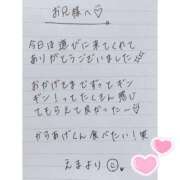 お兄様へ♡
今日は遊びに来てくれて
ありがとうございました
おかげさまでずっとギン
ギン!ってたくさん感じ
てもらえて良かったー♡
からあげくん食べたい!笑
えまより